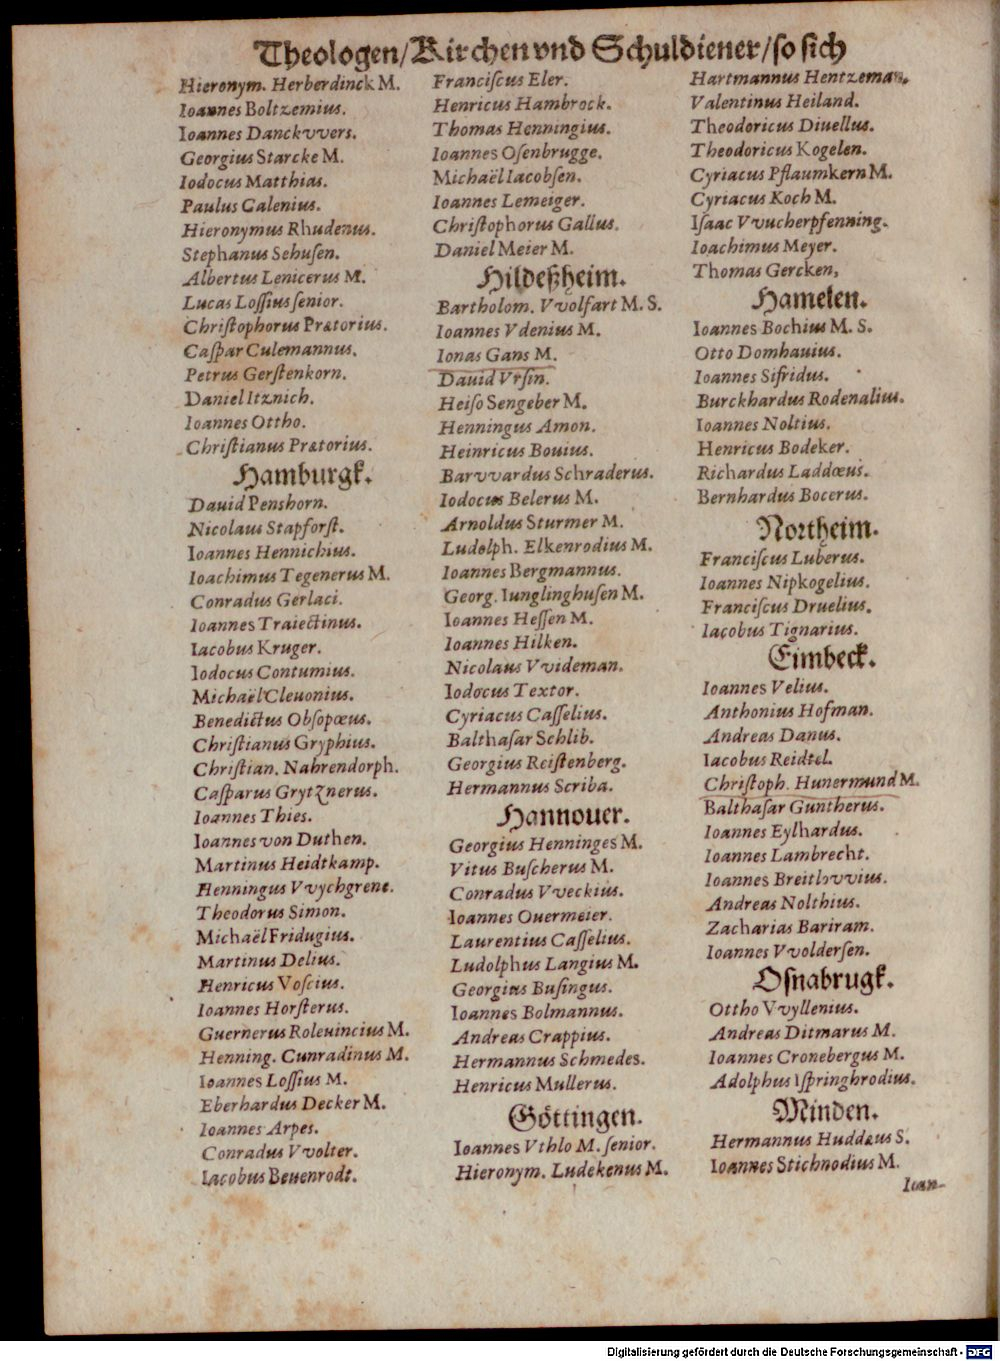 Theologen/Kirchen vnd Schuldiener/so sich
Hieronym. Herberdinck M.
Ioannes Boltzemius.
Ioannes Danckvvers.
Georgius Starcke M.
Iodocus Matthias.
Paulus Calenius.
Hieronymus Rhudenus.
Stephanus Sehusen.
Albertus Lenicerus M.
Lucas Lossius senior.
Christophorus Prætorius.
Caspar Culemannus.
Petrus Gerstenkorn.
Daniel Itznich.
Ioannes Ottho.
Christianus Prætorius.
Hamburgk.
Dauid Penshorn.
Nicolaus Stapforst.
Ioannes Hennichius.
Ioachimus Tegenerus M.
Conradus Gerlaci.
Ioannes Traiectinus.
Iacobus Kruger.
Iodocus Contumius.
Michaël Cleuonius.
Benedictus Obsopœus.
Christianus Gryphius.
Christian. Nahrendorph.
Casparus Grytznerus.
Ioannes Thies.
Ioannes von Duthen.
Martinus Heidtkamp.
Henningus Vvychgrene.
Theodorus Simon.
Michaël Fridugius.
Martinus Delius.
Henricus Voscius.
Ioannes Horsterus.
Guernerus Roleuincius M.
Henning. Cunradinus M.
Ioannes Lossius M.
Eberhardus Decker M.
Ioannes Arpes.
Conradus Vvolter.
Iacobus Beuenrodt.
Franciscus Eler.
Henricus Hambrock.
Thomas Henningius.
Ioannes Osenbrugge.
Michaël Iacobsen.
Ioannes Lemeiger.
Christophorus Gallus.
Daniel Meier M.
Hildeßheim.
Bartholom. Vvolfart M. S.
Ioannes Vdenius M.
Ionas Gans M.
Dauid Vrsin.
Heiso Sengeber M.
Henningus Amon.
Heinricus Bouius.
Barvvardus Schraderus.
Iodocus Belerus M.
Arnoldus Sturmer M.
Ludolph. Elkenrodius M.
Ioannes Bergmannus.
Georg. Iunglinghusen M.
Ioannes Hessen M.
Ioannes Hilken.
Nicolaus Vvideman.
Iodocus Textor.
Cyriacus Casselius.
Balthasar Schlib.
Georgius Reistenberg.
Hermannus Scriba.
Hannouer.
Georgius Henninges M.
Vitus Buscherus M.
Conradus Vveckius.
Ioannes Ouermeier.
Laurentius Casselius.
Ludolphus Langius M.
Georgius Busingus.
Ioannes Bolmannus.
Andreas Crappius.
Hermannus Schmedes.
Henricus Mullerus.
Göttingen.
Ioannes Vthlo M. senior.
Hieronym. Ludekenus M.
Hartmannus Hentzeman.
Valentinus Heiland.
Theodoricus Diuellus.
Theodoricus Kogelen.
Cyriacus Pflaumkern M.
Cyriacus Koch M.
Isaac Vvucherpfenning.
Ioachimus Meyer.
Thomas Gercken,
Hamelen.
Ioannes Bochius M. S.
Otto Domhauius.
Ioannes Sifridus.
Burckhardus Rodenalius.
Ioannes Noltius.
Henricus Bodeker.
Richardus Laddœus.
Bernhardus Bocerus.
Northeim.
Franciscus Luberus.
Ioannes Nipkogelius.
Franciscus Druelius.
Iacobus Tignarius.
Eimbeck.
Ioannes Velius.
Anthonius Hofman.
Andreas Danus.
Iacobus Reidtel.
Christoph. Hunermund M.
Balthasar Guntherus.
Ioannes Eylhardus.
Ioannes Lambrecht.
Ioannes Breithvvius.
Andreas Nolthius.
Zacharias Bariram.
Ioannes Vvoldersen.
Osnabrugk.
Ottho Vvyllenius.
Andreas Ditmarus M.
Ioannes Cronebergus M.
Adolphus Ispringhrodius.
Minden.
Hermannus Huddæus S.
Ioannes Stichnodius M.
Ioan-
Digitalisierung gefördert durch die Deutsche Forschungsgemeinschaft - DFG